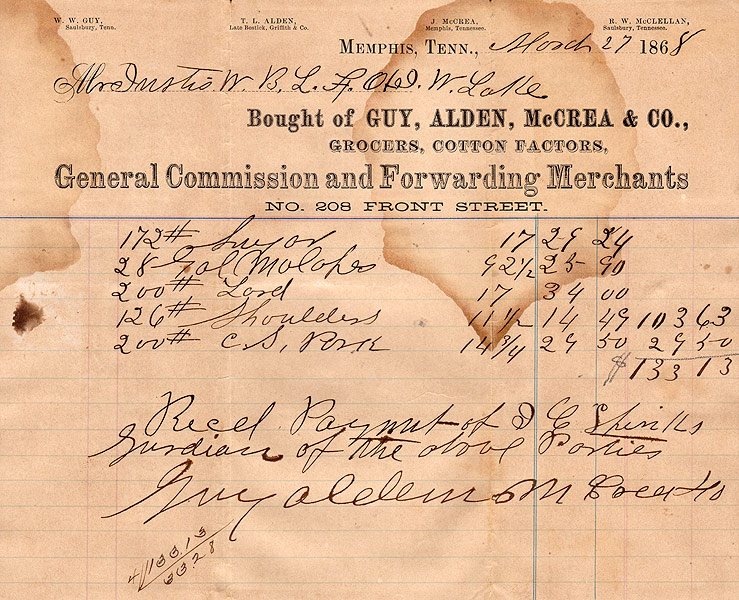 W. W. GUY, T. L. ALDEN, J. McCREA, R. W. McCLELLAN,
Saulsbury, Tenn. Late Bostick, Griffith & Co. Memphis, Tennessee. Saulsbury, Tennessee.
MEMPHIS, TENN., March 27 1868
W. B. L. W. Lake
Bought of GUY, ALDEN, McCREA & CO.,
GROCERS, COTTON FACTORS,
General Commission and Forwarding Merchants
NO. 208 FRONT STREET.
172# Sugar 17 29 24
28 Gal Molasses 92½ 25 90
200# Lard 17 34 00
126# Shoulders 11½ 14 49 103 63
200# C. S. Pork 14¾ 29 50 29 50
$133 13
Recd Paymnt of
Gurdian of the above Parties
Guy Alden McCrea & Co
4/133.13
33.28